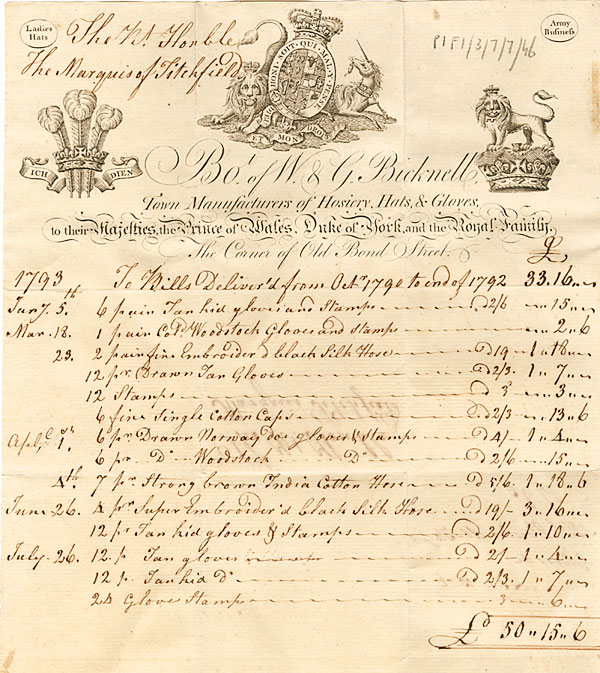 Ladies
Hats
Army
Business
The Rt. Honble
The Marquis of Titchfield
P1 F1/3/7/7/46
HONI SOIT QUI MAL Y PENSE
DIEU ET MON DROIT
ICH DIEN
Bot. of W. & G. Bicknell,
Town Manufacturers of Hosiery, Hats, & Gloves,
to their Majesties, the Prince of Wales, Duke of York, and the Royal Family.
The Corner of Old Bond Street.
£
1793 To Bills Deliver'd from Octr. 1790 to end of 1792 33.16
Jany. 5th 6 pair Tan kid gloves and Stamps 2/6 15
Mar. 18. 1 pair Cold. Woodstock Gloves and stamps 2 6
23. 2 pair fine Embroider'd black Silk Hose 19 1 18
12 pr. Drawn Tan Gloves 2/3. 1 7
12 Stamps 3 3
6 fine Single Cotton Caps 2/3 13 6
April 1. 6 pr. Drawn Norway doe gloves & Stamps 4/ 1 4
6 pr. Do. Woodstock Do. 2/6 15
4th. 7 pr. Strong brown India Cotton Hose 5/6. 1 18 6
June 26. 4 pr. Super Embroider'd black Silk Hose 19/ 3 16
12 pr. Tan kid gloves & Stamps 2/6 1 10
July 26. 12 pr. Tan gloves 2/ 1 4
12 pr. Tan kid Do. 2/3. 1 7
24 Glove Stamps 3 6
£ 50 15 6